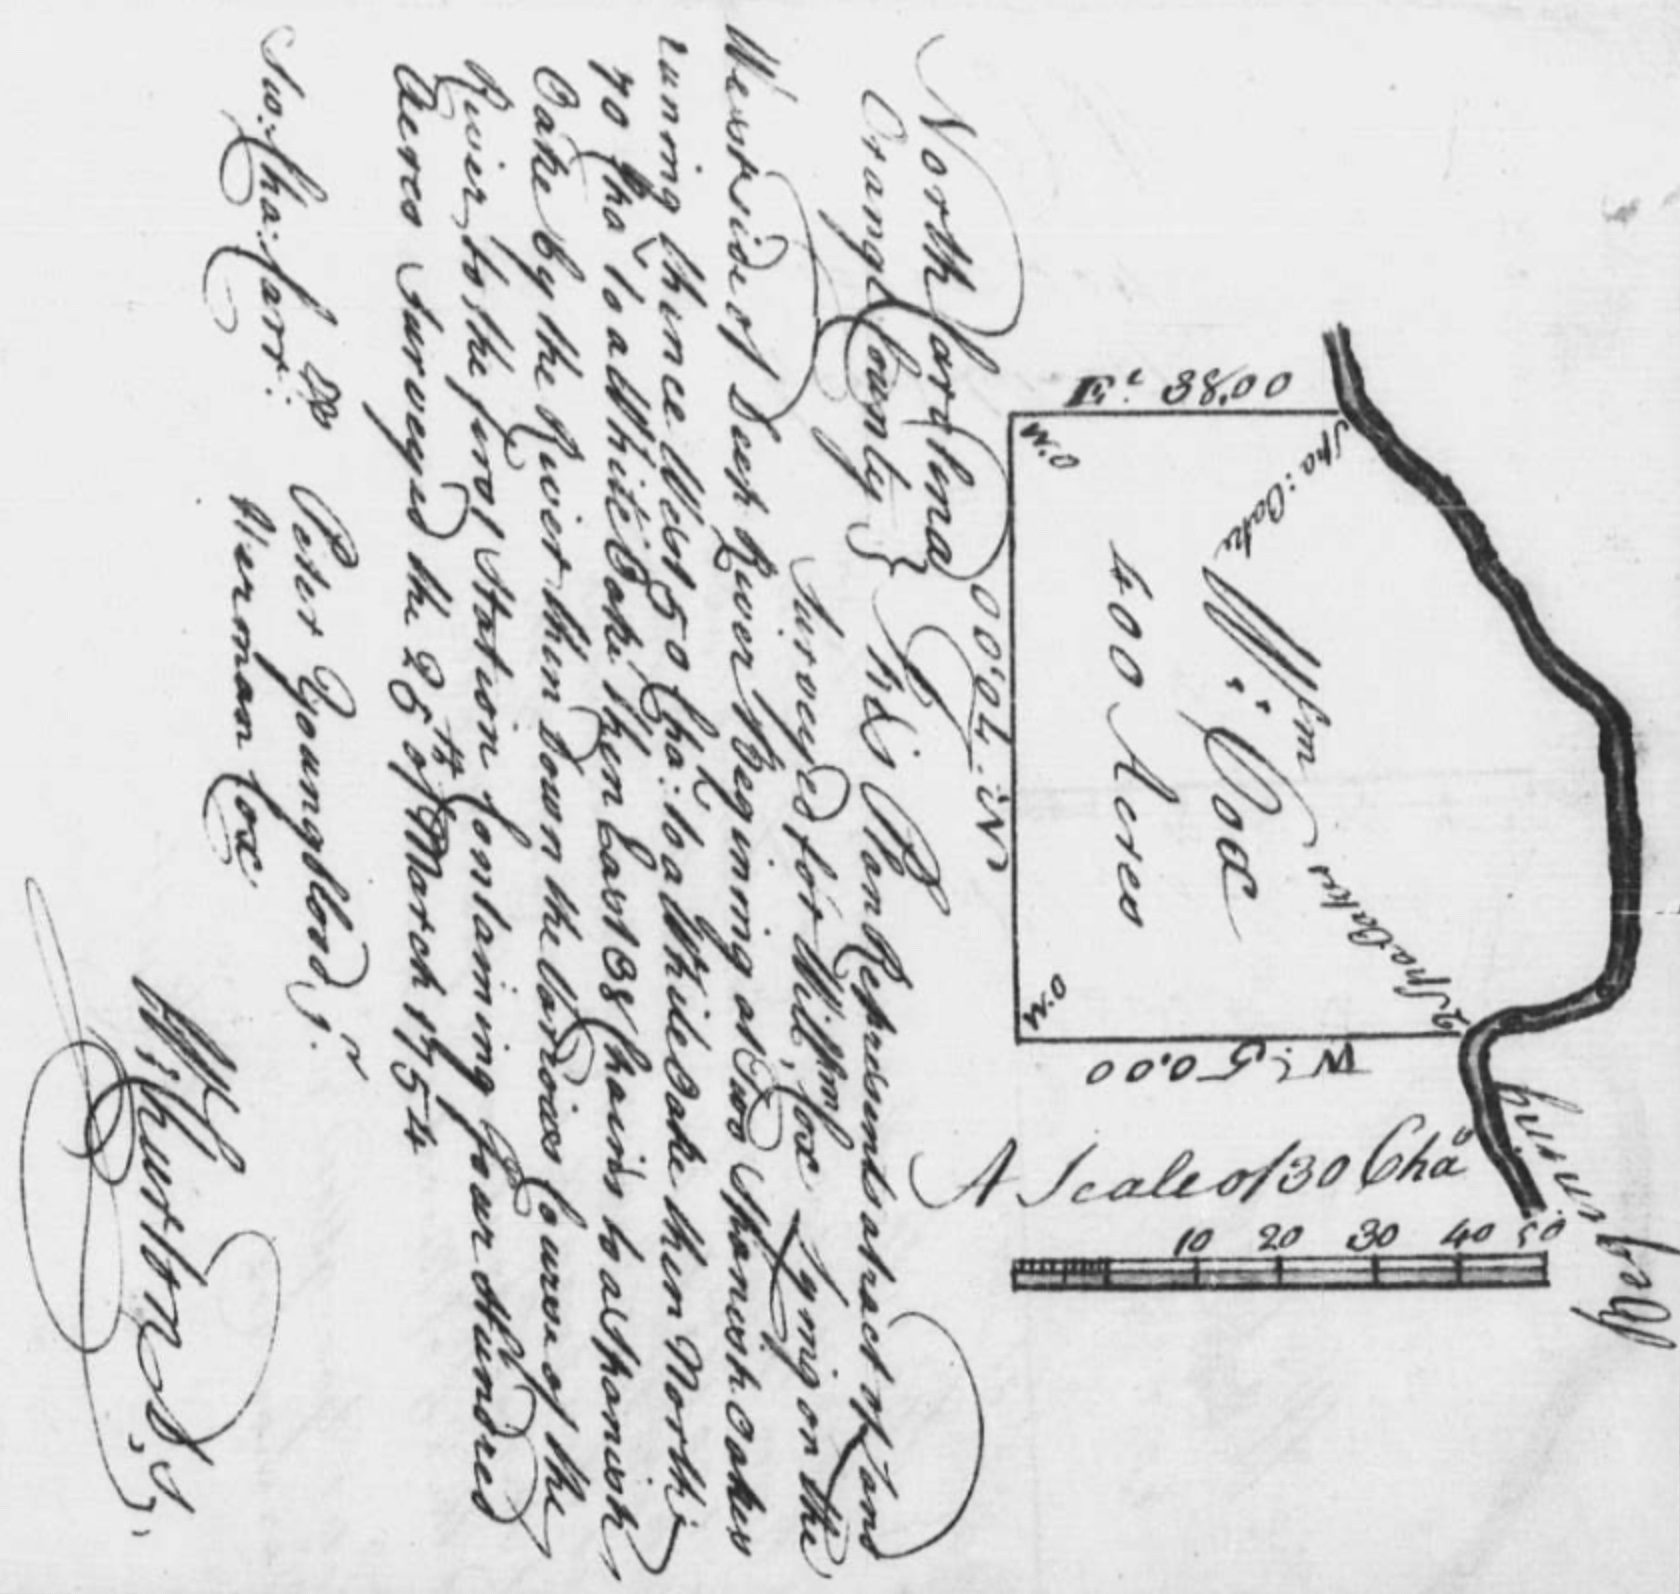 North Carolina
Orange County }
This Plan Represents a tract of Land
Surveyed for Willm. Cox Lying on the
West side of Deep River Begining at Two Spanish Oakes
runing thence West 50 Cha: to a White Oake then North
70 Cha: to a White Oake then East 38 Chains to a Spanish
Oake by the River then Down the Various Courses of the
River to the first Station Containing four Hundred
Acres Surveyed the 25th of March 1754
Peter Youngblood Jr.
Sw: Cha: Carr:
Herman Cox
W: Churton, S,
E: 38,00
W.O
Spa: Oake
N: 70,00
Wm: Cox
400 Acres
2 Spa Oakes
W.O
W: 50,00
Begining
A Scale of 30 Cha
10 20 30 40 50